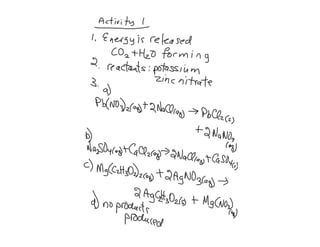 Activity 1
1. Energy is released
CO2 + H2O forming
2. reactants: potassium
zinc nitrate
3.
a)
Pb(NO3)2(aq) + 2NaCl(aq) → PbCl2(s)
+ 2NaNO3
(aq)
b)
Na2SO4(aq) + CaCl2(aq) → 2NaCl(aq) + CaSO4(s)
c) Mg(C2H3O2)2(aq) + 2AgNO3(aq) →
2AgC2H3O2(s) + Mg(NO3)2
(aq)
d) no products
produced